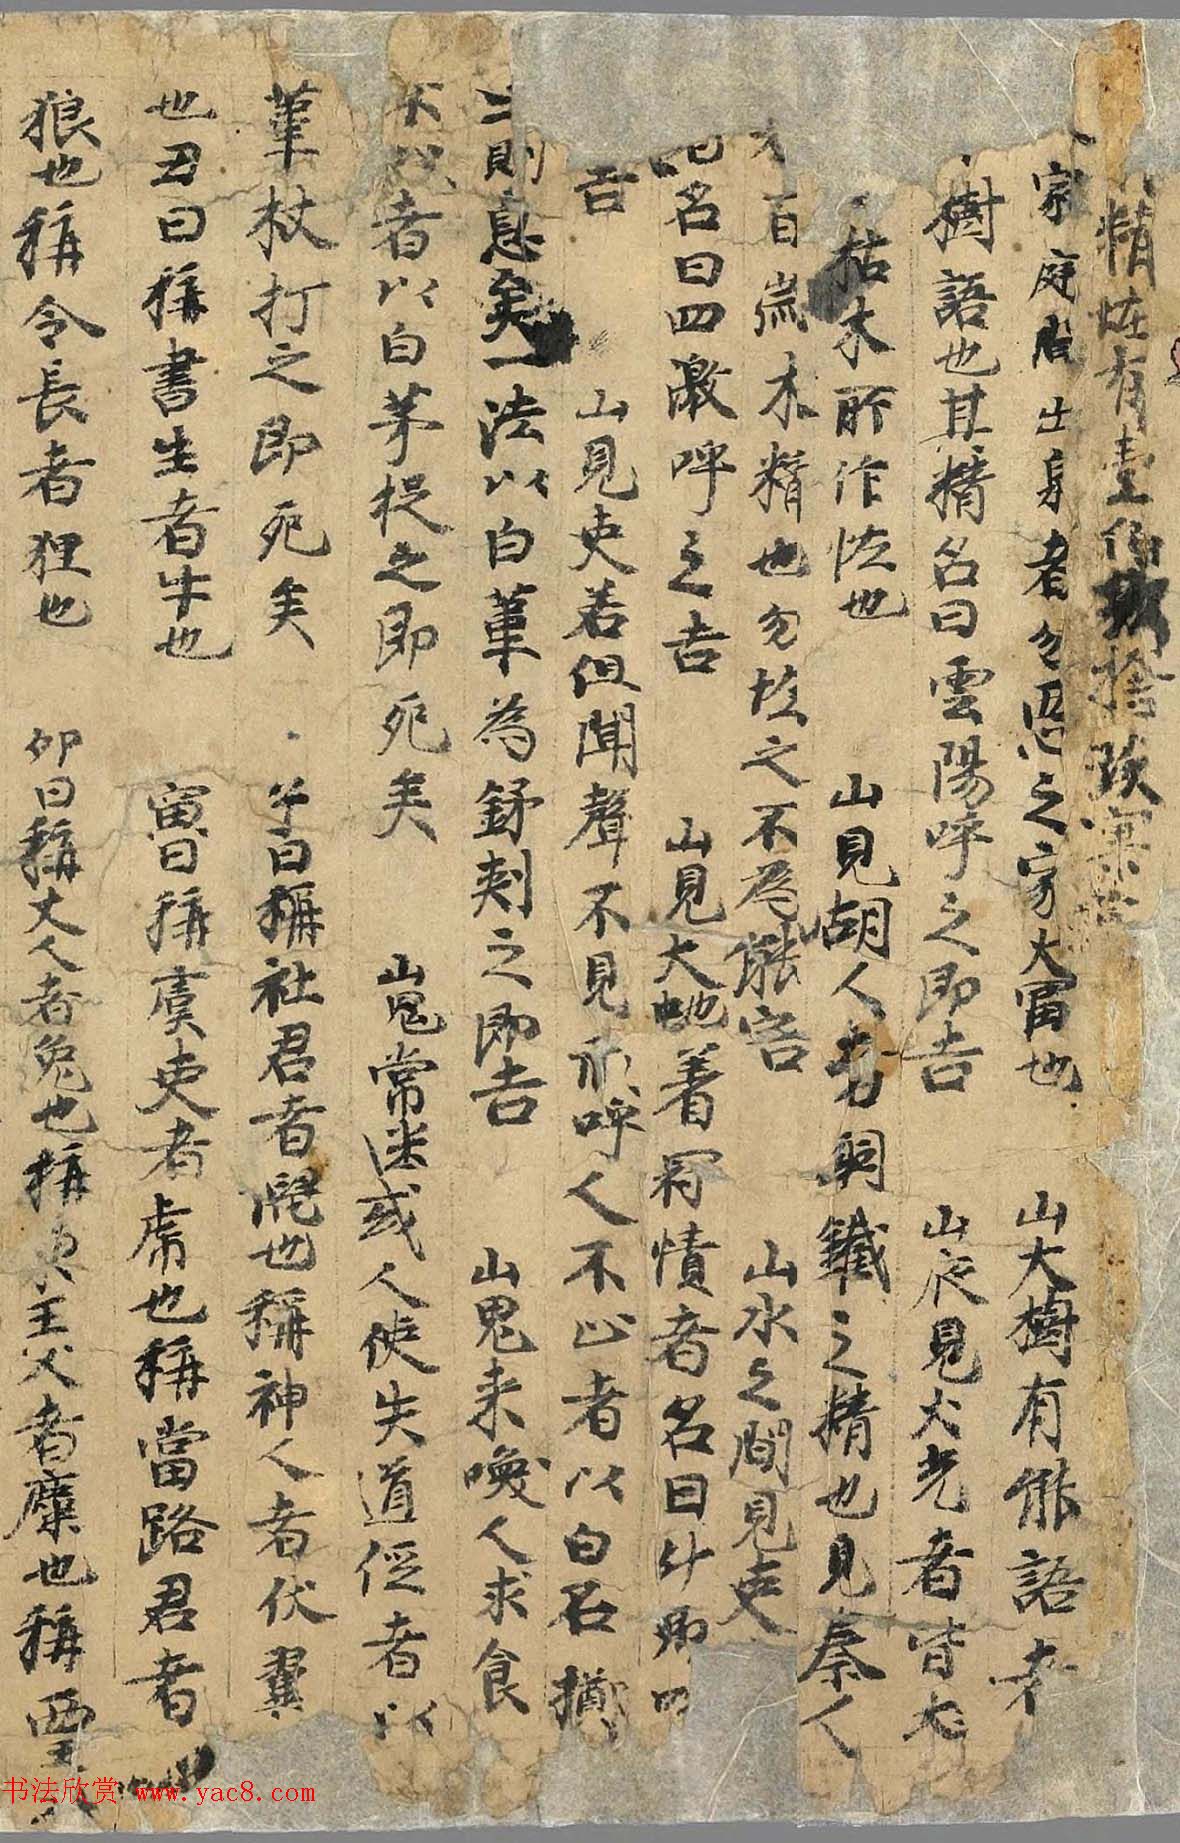 精恠有壹伯
家庭 出身者勿惡之家大冨也 山大樹有能語者
樹語也其精名曰雲陽呼之即吉 山夜見火光者皆大
枯木所作恠也 山見胡人者銅鐵之精也見秦人
者百嵗木精也勿恠之不為能害 山水之間見吏
名曰四激呼之吉 山見大虵著冠幘者名曰升卿呼
吉 山見吏若但聞聲不見形呼人不止者以白石擲
之則息矣一法以白葦為鉾刺之即吉 山鬼来喚人求食
不 者以白茅捉之即死矣 山鬼常迷或人使失道侄者以
葦杖打之即死矣 子日稱社君者鼠也稱神人者伏翼
也丑日稱書生者牛也 寅日稱虞吏者虎也稱當路君者
狼也稱令長者狸也 卯日稱丈人者兔也稱東王父者麋也稱西王
书法欣赏 www.yac8.com